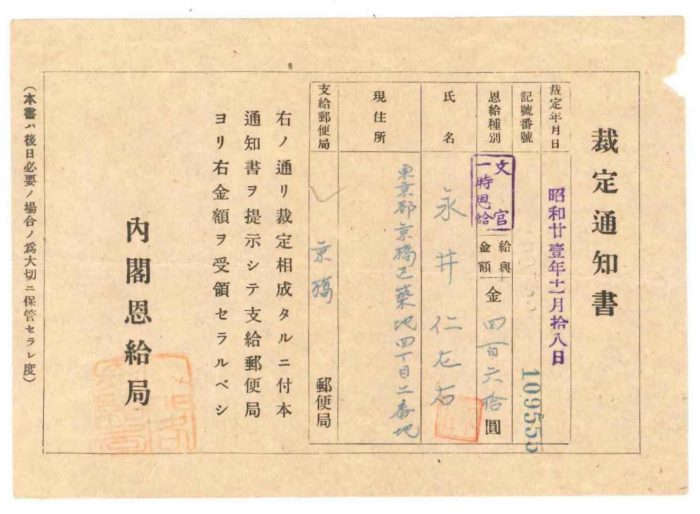 裁定通知書
裁定年月日 昭和廿壹年十一月拾八日
記號番號 109555
恩給種別 文官一時恩給 給與金額 金四百六拾圓
氏名 永井仁左右
現住所 東京都京橋区築地四丁目二番地
支給郵便局 京橋郵便局
右ノ通リ裁定相成タルニ付本
通知書ヲ提示シテ支給郵便局
ヨリ右金額ヲ受領セラルベシ
內閣恩給局
(本書ハ後日必要ノ場合ノ爲大切ニ保管セラレ度)